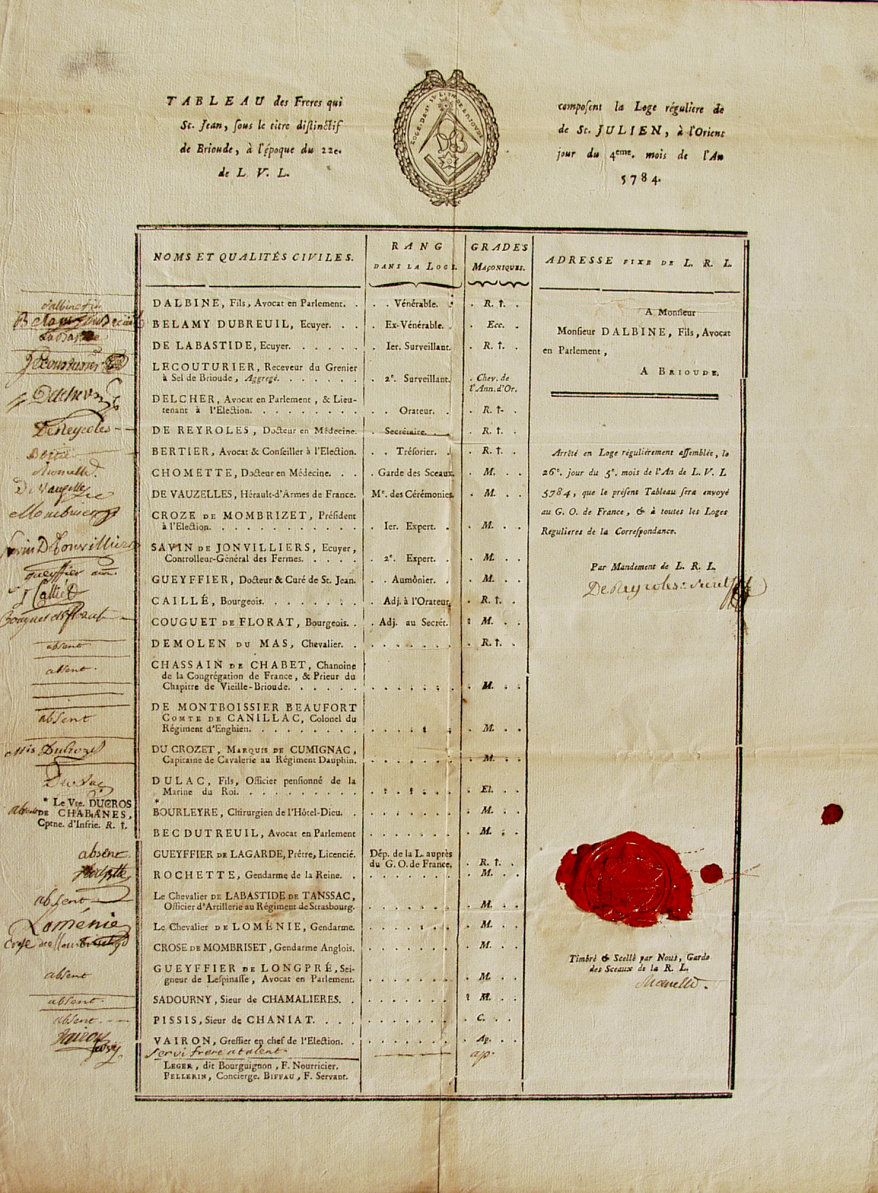 TABLEAU des Freres qui composent la Loge régulière de
St. Jean, sous le titre distinctif de St. JULIEN, à l'Orient
de Brioude, à l'époque du 22e. jour du 4eme. mois de l'An
de L. V. L. 5784.
NOMS ET QUALITÉS CIVILES.
RANG
DANS LA LOGE.
GRADES
MAÇONIQUES.
ADRESSE FIXE DE L. R. L.
DALBINE, Fils, Avocat en Parlement. . . . Vénérable. . R. †. .
BELAMY DUBREUIL, Ecuyer. . . . Ex-Vénérable. . Ecc. .
DE LABASTIDE, Ecuyer. . . . . Ier. Surveillant. . R. †. .
LECOUTURIER, Receveur du Grenier
à Sel de Brioude, Aggregé. . . . . . . . . 2e. Surveillant. . Chev. de
l'Ann. d'Or.
DELCHER, Avocat en Parlement, & Lieu-
tenant à l'Election. . . . . . . . . . Orateur. . . R. †. .
DE REYROLES, Docteur en Médecine. . . Secrétaire. . . R. †. .
BERTIER, Avocat & Conseiller à l'Election. . . Trésorier. . . R. †. .
CHOMETTE, Docteur en Médecine. . . . Garde des Sceaux. . M. . .
DE VAUZELLES, Hérault-d'Armes de France. Me. des Cérémonies. . M. . .
CROZE DE MOMBRIZET, Président
à l'Election. . . . . . . . . . Ier. Expert. . . M. . .
SAVIN DE JONVILLIERS, Ecuyer,
Controlleur-Général des Fermes. . . . . . 2e. Expert. . . M. . .
GUEYFFIER, Docteur & Curé de St. Jean. . . Aumônier. . . M. . .
CAILLÉ, Bourgeois. . . . . . . . Adj. à l'Orateur. . R. †. .
COUGUET DE FLORAT, Bourgeois. . . . Adj. au Secrét. . M. . .
DEMOLEN DU MAS, Chevalier. . . . . . . . . . . R. †. .
CHASSAIN DE CHABET, Chanoine
de la Congrégation de France, & Prieur du
Chapitre de Vieille-Brioude. . . . . . . . . . . . . M. . .
DE MONTBOISSIER BEAUFORT
COMTE DE CANILLAC, Colonel du
Régiment d'Enghien. . . . . . . . . . . . . . . M. . .
DU CROZET, MARQUIS DE CUMIGNAC,
Capitaine de Cavalerie au Régiment Dauphin. . . . . . . . . M. . .
DULAC, Fils, Officier pensionné de la
Marine du Roi. . . . . . . . . . . . . . . . . El. . .
* Le Vte. DUCROS
DE CHABANES,
Cptne. d'Infrie. R. †.
*
BOURLEYRE, Chirurgien de l'Hôtel-Dieu. . . . . . . . . M. . .
BEC DUTREUIL, Avocat en Parlement . . . . . . . M. . .
GUEYFFIER DE LAGARDE, Prêtre, Licencié. Dép. de la L. auprès
du G. O. de France. . R. †. .
ROCHETTE, Gendarme de la Reine. . . . . . . . . . M. . .
Le Chevalier DE LABASTIDE DE TANSSAC,
Officier d'Artillerie au Régiment de Strasbourg. . . . . . . . M. . .
Le Chevalier DE LOMÉNIE, Gendarme. . . . . . . . . M. . .
CROSE DE MOMBRISET, Gendarme Anglois. . . . . . . . M. . .
GUEYFFIER DE LONGPRÉ, Sei-
gneur de Lespinasse, Avocat en Parlement. . . . . . . . M. . .
SADOURNY, Sieur de CHAMALIERES. . . . . . . . . M. . .
PISSIS, Sieur de CHANIAT. . . . . . . . . . . . C. . .
VAIRON, Greffier en chef de l'Election. . . . . . . . . Ap. .
servi frere a talent. ap.
LEGER, dit Bourguignon, F. Nourricier.
PELLERIN, Concierge. BIFFAU, F. Servant.
A Monsieur
Monsieur DALBINE, Fils, Avocat
en Parlement,
A BRIOUDE.
Arrêté en Loge régulièrement assemblée, le
26e. jour du 5e. mois de l'An de L. V. L
5784, que le présent Tableau sera envoyé
au G. O. de France, & à toutes les Loges
Regulieres de la Correspondance.
Par Mandement de L. R. L.
DeReyroles
Timbré & Scellé par Nous, Garde
des Sceaux de la R. L.
dalbine fils
DeReyroles
absent
absent
absent
absent
absent
absent
Lomenie
absent
absent
absent